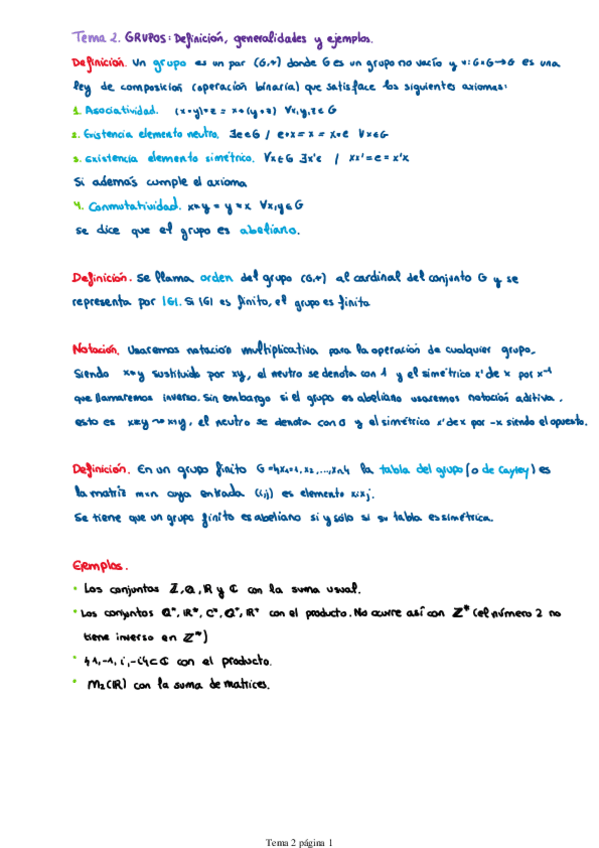 Tema 2. GRUPOS: Definición, generalidades y ejemplos.
Definición. Un grupo es un par (G,*) donde G es un grupo no vacío y *: G×G→G es una
ley de composición (operación binaria) que satisface los siguientes axiomas:
1. Asociatividad. (x*y)*z = x*(y*z) ∀x,y,z∈G
2. Existencia elemento neutro. ∃e∈G / e*x = x = x*e ∀x∈G
3. Existencia elemento simétrico. ∀x∈G ∃x'∈ / xx' = e = x'x
Si además cumple el axioma
4. Conmutatividad. x*y = y*x ∀x,y∈G
se dice que el grupo es abeliano.
Definición. Se llama orden del grupo (G,*) al cardinal del conjunto G y se
representa por |G|. Si |G| es finito, el grupo es finito
Notación. Usaremos notación multiplicativa para la operación de cualquier grupo.
Siendo x*y sustituido por xy, el neutro se denota con 1 y el simétrico x' de x por x⁻¹
que llamaremos inverso. Sin embargo si el grupo es abeliano usaremos notación aditiva.
esto es x*y ~> x+y, el neutro se denota con 0 y el simétrico x' de x por -x siendo el opuesto.
Definición. En un grupo finito G={x₁=1, x₂,...,xₙ} la tabla del grupo (o de Cayley) es
la matriz n×n cuya entrada (i,j) es elemento xᵢxⱼ.
Se tiene que un grupo finito es abeliano si y sólo si su tabla es simétrica.
Ejemplos.
• Los conjuntos ℤ, ℚ, ℝ y ℂ con la suma usual.
• Los conjuntos ℚ*, ℝ*, ℂ*, ℚ⁺, ℝ⁺ con el producto. No ocurre así con ℤ* (el número 2 no
tiene inverso en ℤ*)
• {1,-1, i,-i}⊂ℂ con el producto.
• M₂(ℝ) con la suma de matrices.
Tema 2 página 1